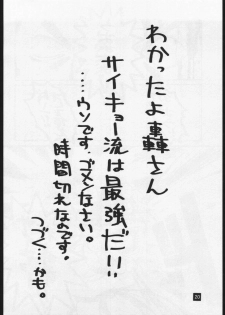 わかったよ轟さん
サイキョー流は最強だ!!
……ウソです。ゴメンなさい。
時間切れなのです。
つづく…かも。
20